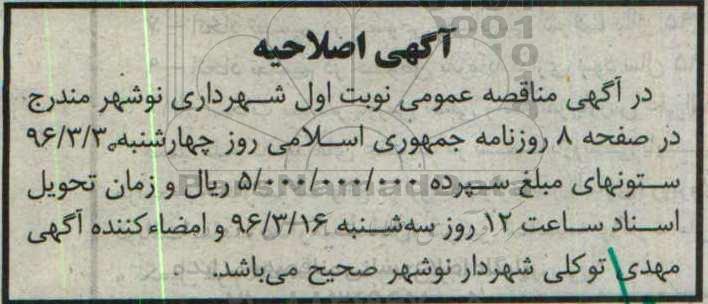 آگهی اصلاحیه
در آگهی مناقصه عمومی نوبت اول شهرداری نوشهر مندرج
در صفحه ۸ روزنامه جمهوری اسلامی روز چهارشنبه ۹۶/۳/۳
ستونهای مبلغ سپرده ۵/۰۰۰/۰۰۰/۰۰۰ ریال و زمان تحویل
اسناد ساعت ۱۲ روز سه‌شنبه ۹۶/۳/۱۶ و امضاءکننده آگهی
مهدی توکلی شهردار نوشهر صحیح می‌باشد.
ParsNamadData